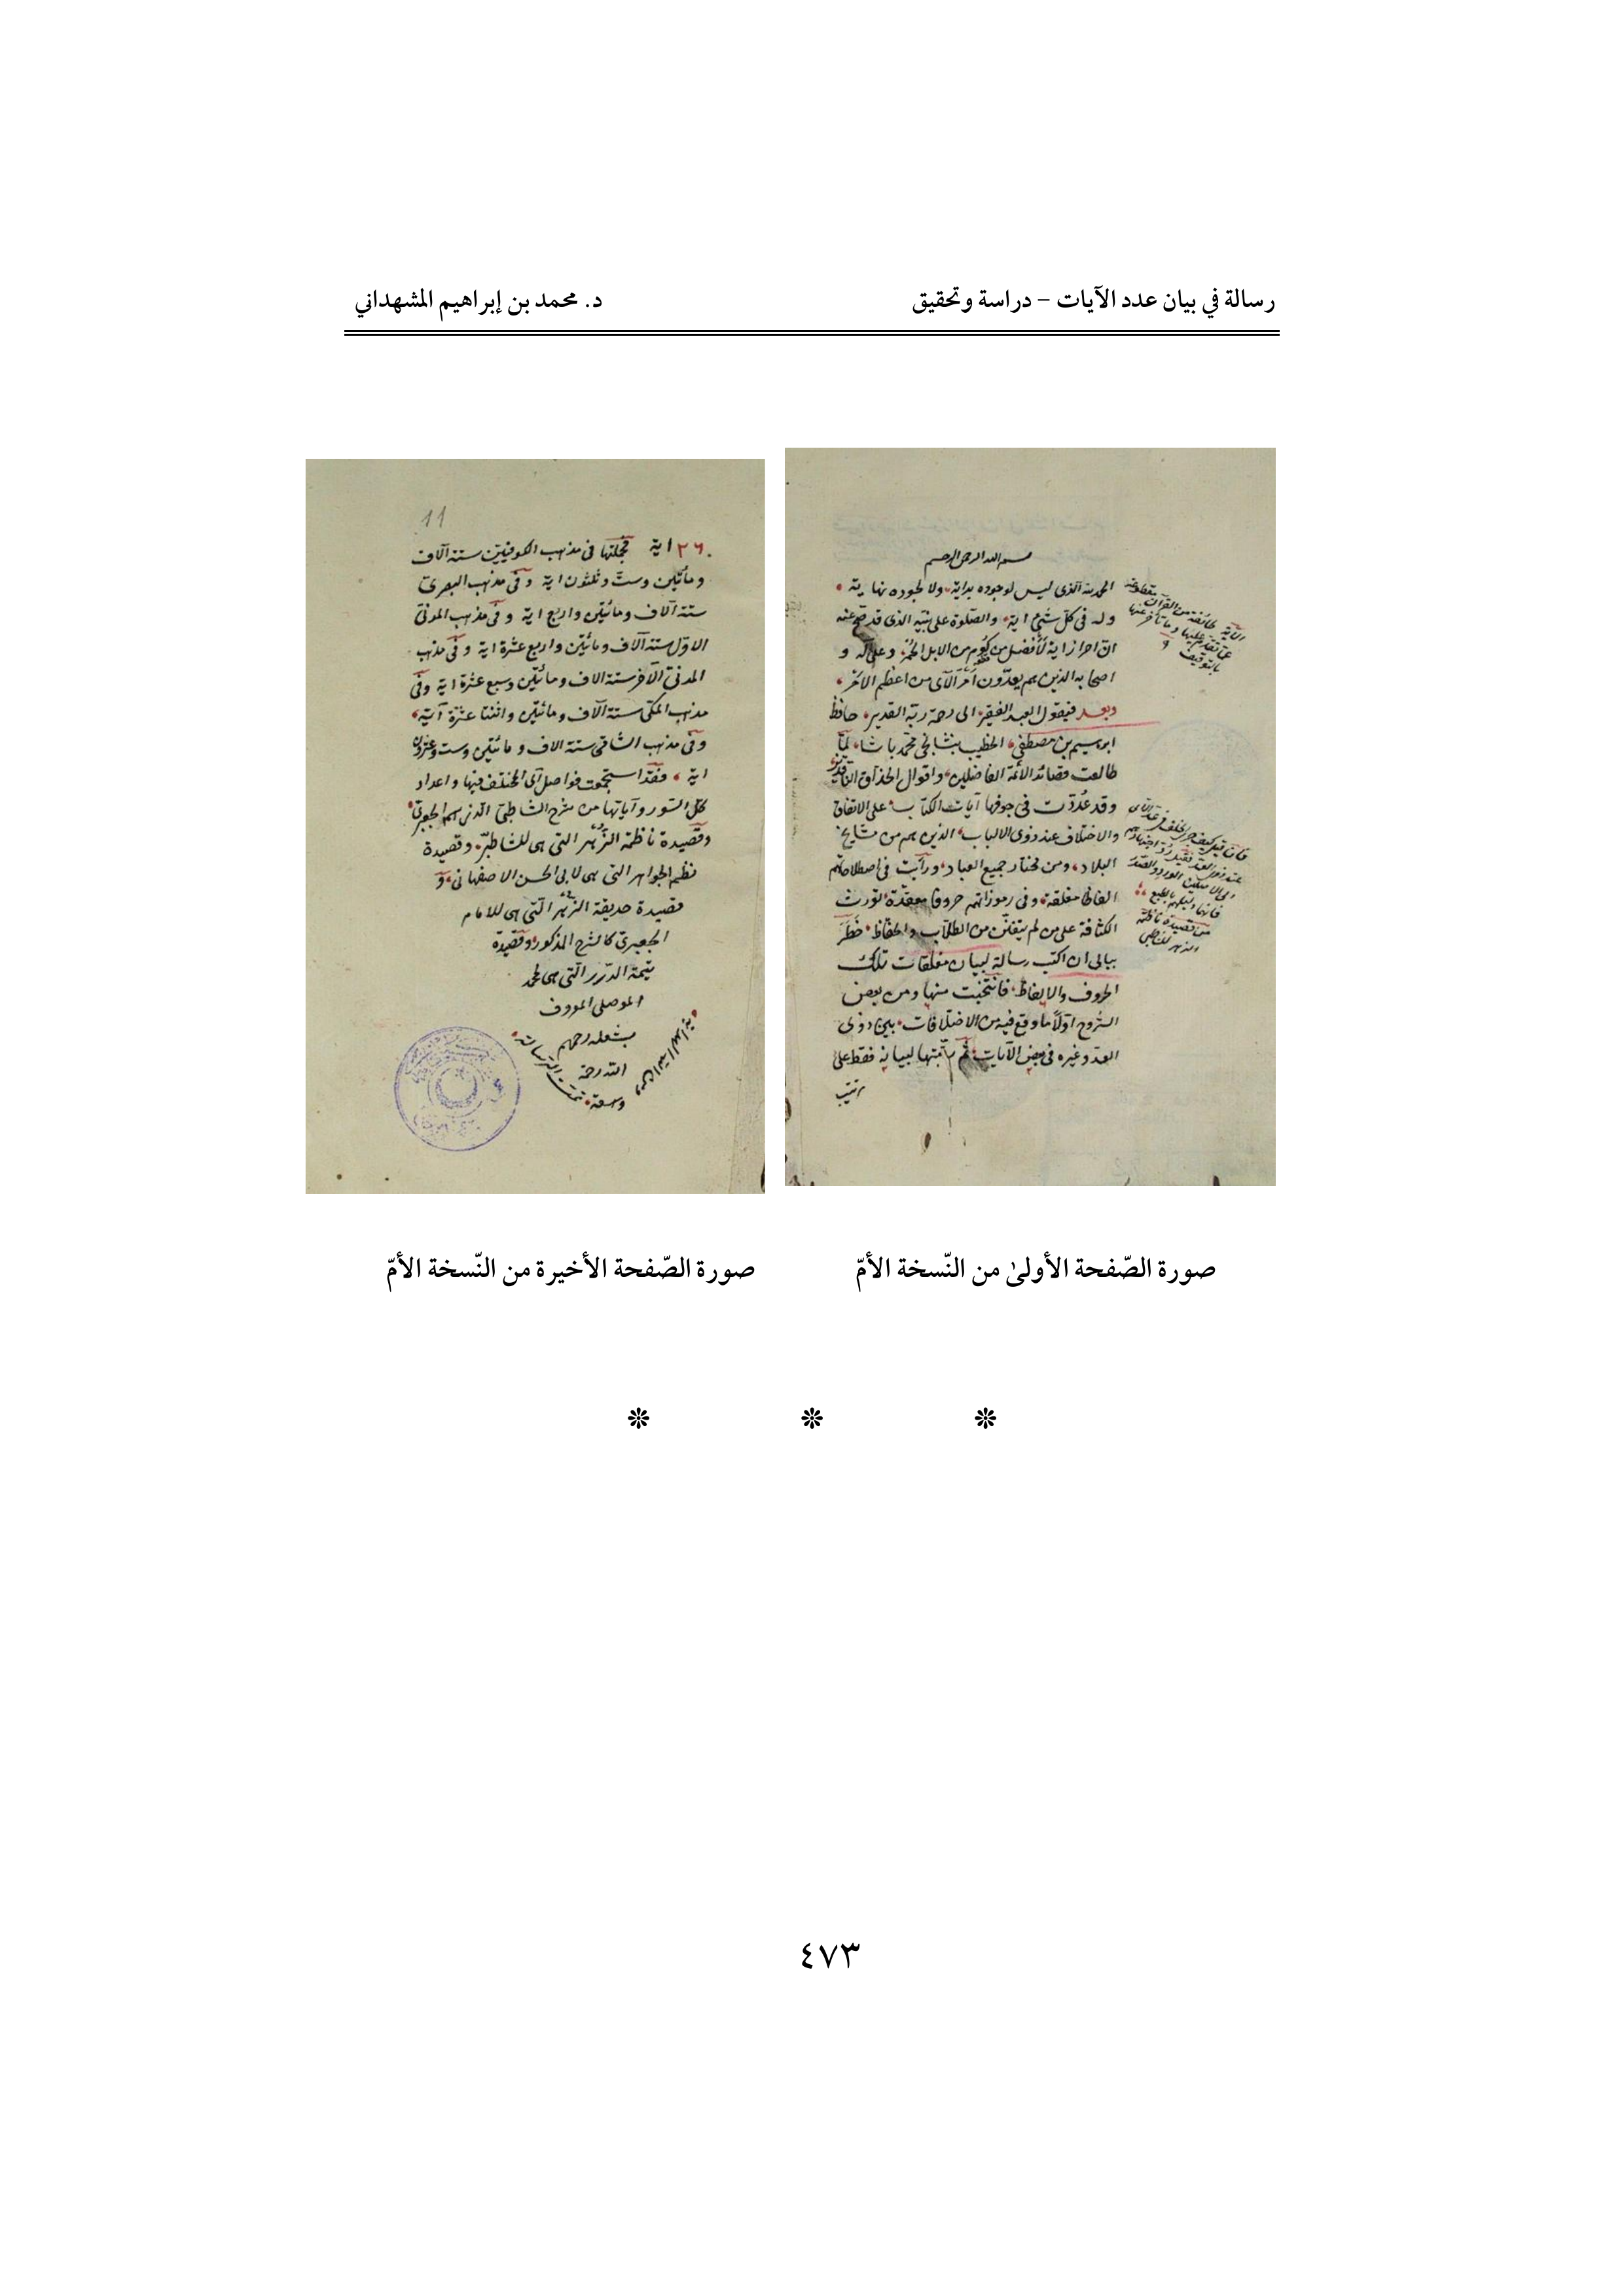 رسالة في بيان عدد الآيات – دراسة وتحقيق
د. محمد بن إبراهيم المشهداني
بسم الله الرحمن الرحيم
الحمد لله الذى ليس لوجوده بداية ولا لجوده نهاية
وله فى كل شئ اية والصلوة على نبيه الذى قد صح عنه
ان احراز اية لأفضل من كوم من الابل الحمر وعلى آله و
اصحابه الذين هم يعدّون أمر الآى من اعظم الامر
وبعد فيقول العبد الفقير الى رحمة ربه القدير حافظ
ابرهيم بن مصطفى الخطيب بنشانجى محمد باشا لمّا
طالعت قصائد الأئمة الفاضلين واقوال الحذاق الناقدين
وقد عُدّت فى جوفها آيات الكتاب على الاتفاق
والاختلاف عند ذوى الالباب الذين هم من مشايخ
البلاد ومن مختار جميع العباد ورأيت فى اصطلاحاتهم
الفاظا مغلقة وفى رموزاتهم حروفا معقدة تورث
الكثافة على من لم يتفنن من الطلاب والحفاظ خطر
ببالى ان اكتب رسالة لبيان مغلقات تلك
الحروف والالفاظ فانتخبت منها ومن بعض
الشروح اوّلاً ما وقع فيه من الاختلافات بين ذوى
العدد وغيره فى بعض الآيات ثم تممتها لبيانه فقط على
الآية طائفة من القرآن منقطعة
عما تقدم عليها وما تأخر عنها
بالتوقيف
من قصيدة ناظمة
الزهر للشاطبى
11
٦٢٣٦ اية فجملتها فى مذهب الكوفيين ستة آلاف
ومأتين وستّ وثلثون اية وفى مذهب البصرى
ستة آلاف ومائتين واربع اية وفى مذهب المدنى
الاول ستة آلاف ومائتين واربع عشرة اية وفى مذهب
المدنى الآخر ستة الاف ومائتين وسبع عشرة اية وفى
مذهب المكى ستة آلاف ومائتين واثنتا عشرة آية
وفى مذهب الشامى ستة الاف ومائتين وست وعشرون
اية فقد استجمعت فواصل آى المختلف فيها واعداد
كل السور وآياتها من شرح الشاطبى الذى هو الجعبرى
وقصيدة ناظمة الزُّهر التى هى للشاطبىّ وقصيدة
نظم الجواهر التى هى لابى الحسن الاصفهانى و
قصيدة حديقة الزّهر التى هى للامام
الجعبرى كالشرح المذكور وقصيدة
يتيمة الدرر التى هى لمحمد
الموصلى المعروف
بشعله رحمهم
الله رحمة
وسعة
صورة الصّفحة الأولىٰ من النّسخة الأمّ
صورة الصّفحة الأخيرة من النّسخة الأمّ
٤٧٣